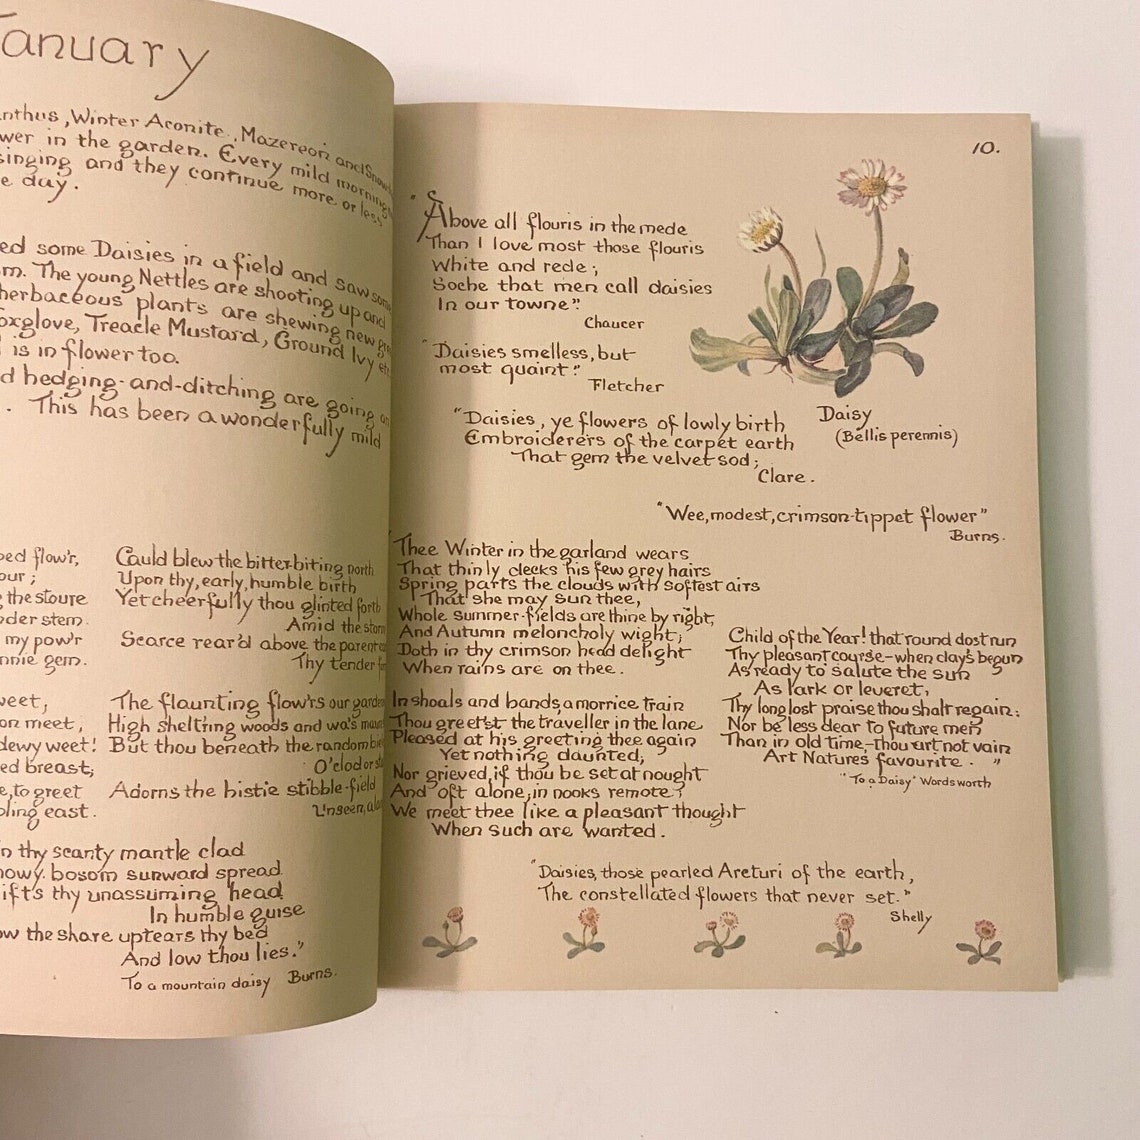 January
Winter Aconite, Mazereon and
in the garden. Every mild morning
singing and they continue more or less
day.
some Daisies in a field and saw some
The young Nettles are shooting up and
herbaceous plants are shewing new
Foxglove, Treacle Mustard, Ground Ivy
is in flower too.
hedging-and-ditching are going on
. This has been a wonderfully mild
flow'r,
the stoure
stem.
my pow'r
gem.
Cauld blew the bitter-biting north
Upon thy, early, humble birth
Yet cheerfully thou glinted forth
Amid the storm
Scarce rear'd above the parent
Thy tender
meet,
dewy weet!
breast;
to greet
east.
The flaunting flow'rs our garden
High shelt'ring woods and wa's maun
But thou beneath the random
O' clod or
Adorns the histie stibble-field
Unseen,
thy scanty mantle clad
bosom sunward spread
thy unassuming head
In humble guise
the share uptears thy bed
And low thou lies."
To a mountain daisy Burns.
10.
"Above all flouris in the mede
Than I love most those flouris
White and rede;
Soche that men call daisies
In our towne".
Chaucer
"Daisies smelless, but
most quaint".
Fletcher
"Daisies, ye flowers of lowly birth
Embroiderers of the carpet earth
That gem the velvet sod;
Clare.
Daisy
(Bellis perennis)
"Wee, modest, crimson-tippet flower"
Burns.
Thee Winter in the garland wears
That thinly decks his few grey hairs
Spring parts the clouds with softest airs
That she may sun thee,
Whole summer-fields are thine by right;
And Autumn meloncholy wight;
Doth in thy crimson head delight
When rains are on thee.
In shoals and bands, a morrice train
Thou greet'st the traveller in the lane
Pleased at his greeting thee again
Yet nothing daunted;
Nor grieved, if thou be set at nought
And oft alone, in nooks remote;
We meet thee like a pleasant thought
When such are wanted.
Child of the Year! that round dost run
Thy pleasant course-when day's begun
As ready to salute the sun
As lark or leveret,
Thy long lost praise thou shalt regain;
Nor be less dear to future men
Than in old time,-thou art not vain
Art Natures favourite. "
"To a Daisy" Wordsworth
"Daisies, those pearled Arcturi of the earth,
The constellated flowers that never set."
Shelly